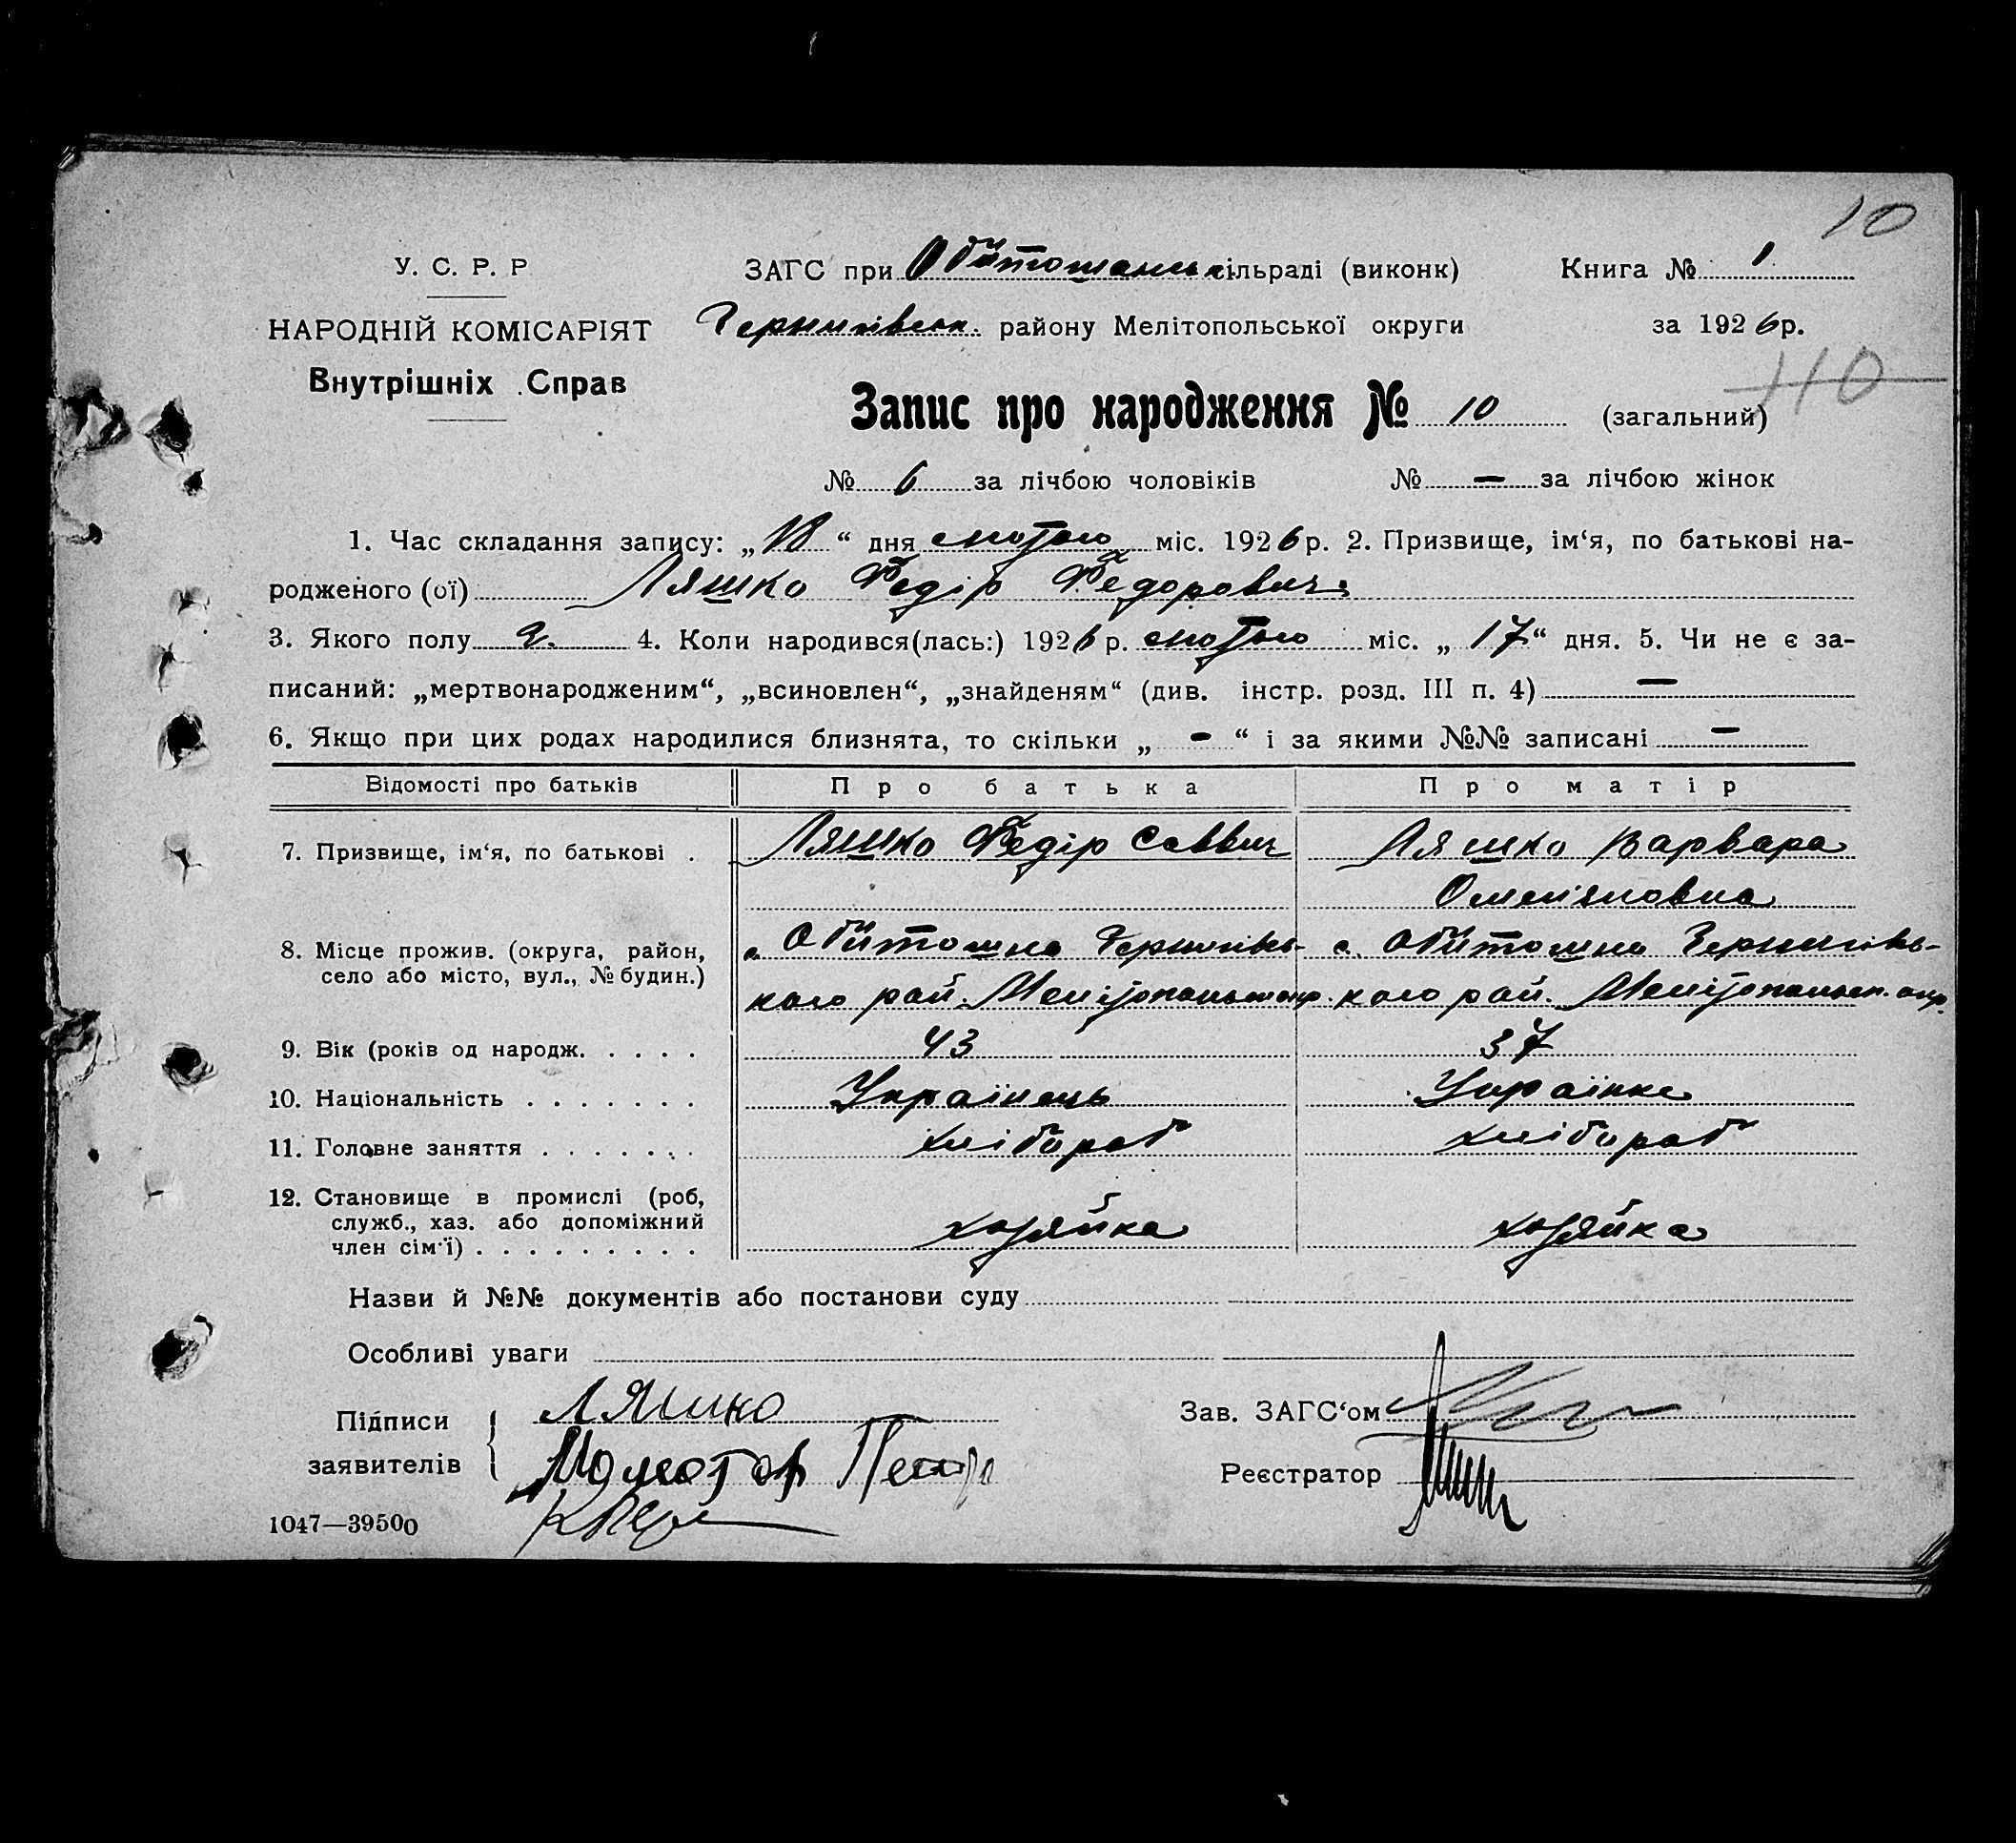 10
У. С. Р. Р
ЗАГС при Обиточансь сільраді (виконк) Книга № 1
НАРОДНІЙ КОМІСАРІЯТ Чернигівськ. району Мелітопольської округи за 1926 р.
Внутрішніх Справ
110
Запис про народження № 10 (загальний)
№ 6 за лічбою чоловіків № — за лічбою жінок
1. Час складання запису: „18“ дня лютого міс. 1926 р. 2. Призвище, ім‘я, по батькові на-
родженого (ої) Ляшко Федір Федорович
3. Якого полу ч. 4. Коли народився(лась:) 1926 р. лютого міс. „17“ дня. 5. Чи не є за-
писаний: „мертвонародженим“, „всиновлен“, „знайденям“ (див. інстр. розд. III п. 4) —
6. Якщо при цих родах народилися близнята, то скільки „ - “ і за якими №№ записані —
Відомості про батьків Про батька Про матір
7. Призвище, ім‘я, по батькові . Ляшко Федір Саввич Ляшко Варвара
Омеляновна
8. Місце прожив. (округа, район, с. Обиточна Чернигівсь- с. Обиточна Чернигівсь-
село або місто, вул., № будин.) кого рай. Мелітопольськ окр. кого рай. Мелітопольськ. окр.
9. Вік (років од народж. . . . . 43 37
10. Національність . . . . . . . Українець Українка
11. Головне заняття . . . . . . . хлібороб хлібороб
12. Становище в промислі (роб,
служб., хаз. або допоміжний хозяйка хозяйка
член сім‘ї) . . . . . . . . .
Назви й №№ документів або постанови суду
Особливі уваги
Підписи Ляшко Зав. ЗАГС‘ом
заявителів Реєстратор
1047—39500